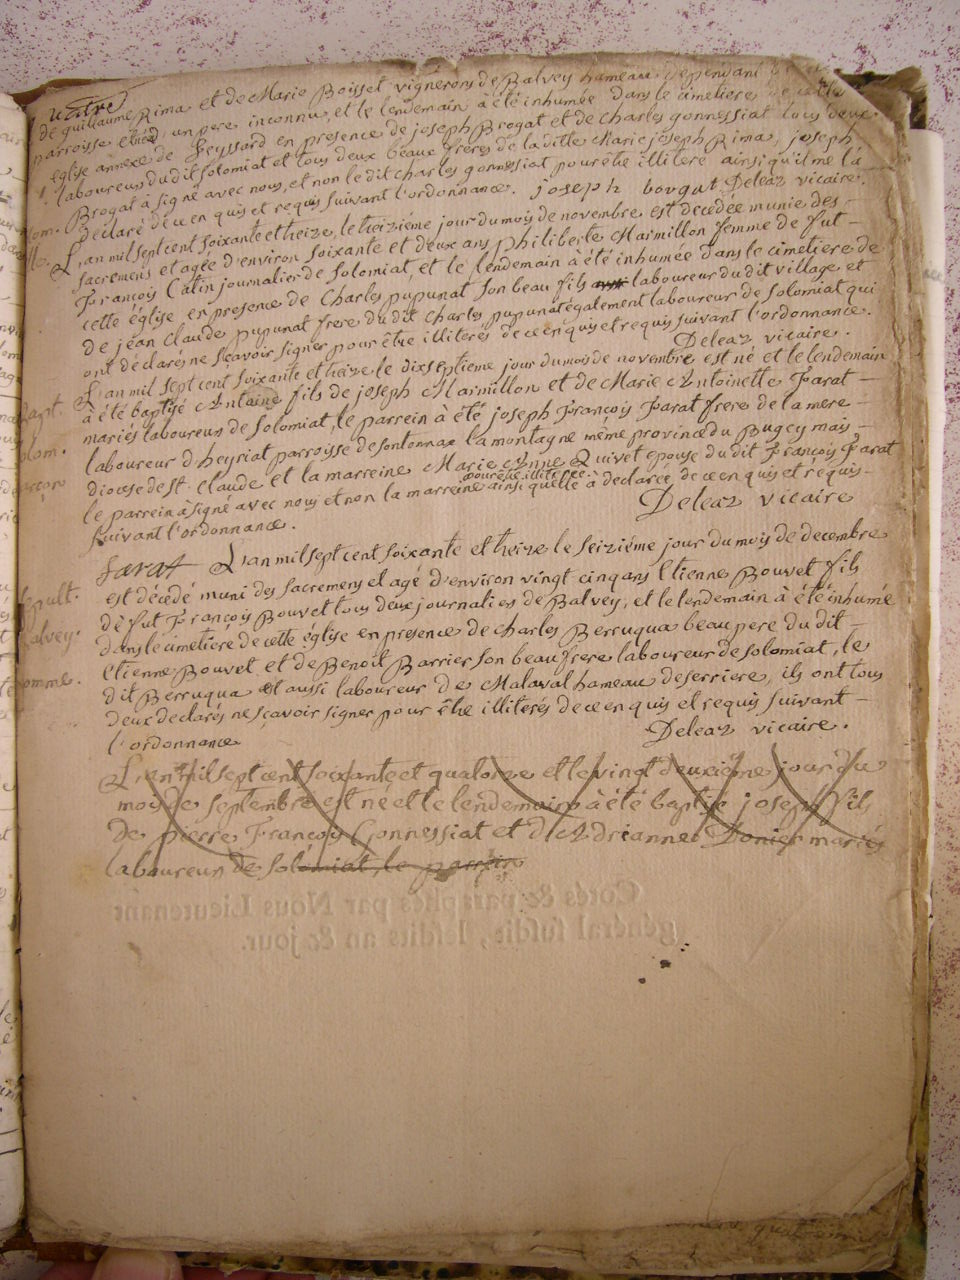 de guillaume Rima et de Marie Boisset vignerons de Balvey hameau dependant
parroisse et d'un pere inconnu, et le lendemain à été inhumée dans le cimetiere de cette
église annexe de Leyssard en presence de joseph Brogat et de Charles gonnessiat tous deux
laboureurs du dit solomiat et tous deux beaux freres de la ditte Marie joseph Rima, joseph
Brogat à signé avec nous, et non le dit Charles gonnessiat pour être illiteré ainsi qu'il me l'à
declaré de ce enquis et requis suivant l'ordonnance. joseph bougat Deleaz vicaire.
L'an mil sept cent soixante et treize, le treiziéme jour du mois de novembre est decedée munie des
sacremens et agée d'environ soixante et deux ans philiberte Marmillon femme de fut
François Catin journalier de solomiat, et le lendemain à été inhumée dans le cimetiere de
cette église en presence de Charles pupunat son beau fils laboureur du dit village, et
de jean claude pupunat frere du dit Charles pupunat également laboureur de solomiat qui
ont déclarés ne sçavoir signer pour être illiterés de ce enquis et requis suivant l'ordonnance.
Deleaz vicaire.
L'an mil sept cent soixante et treize le dix septieme jour du mois de novembre est né et le lendemain
à été baptisé Antoine fils de joseph Marmillon et de Marie Antoinette Farat
mariés laboureurs de solomiat, le parrein à été joseph François Farat frere de la mere
laboureur d'heyriat parroisse de sontonnax la montagne même province du Bugey mais
diocese de st. Claude et la marreine Marie Anne Quivet epouse du dit François Farat
le parrein à signé avec nous et non la marreine pour être illiterée ainsi qu'elle à declarée de ce enquis et requis
suivant l'ordonnance. Deleaz vicaire
farat L'an mil sept cent soixante et treize le seiziéme jour du mois de decembre
est décedé muni des sacremens et agé d'environ vingt cinq ans Etienne Bouvet fils
de fut François Bouvet tous deux journaliers de Balvey, et le lendemain à été inhumé
dans le cimetiére de cette église en presence de Charles Berruqua beau pere du dit
Etienne Bouvet et de Benoit Barrier son beau frere laboureur de solomiat, le
dit Berruqua et aussi laboureur de Malaval hameau de serriere, ils ont tous
deux declarés ne sçavoir signer pour être illiterés de ce enquis et requis suivant
l'ordonnance Deleaz vicaire.
L'an mil sept cent soixante et quatorze et le vingt deuxiéme jour du
mois de septembre est né et le lendemain à été baptisé joseph fils
de pierre François Gonnessiat et d'Adrianne Donier mariés
laboureurs de solomiat, le parrein
Cotés & paraphés par Nous Lieutenant
général susdit, lesdits an & jour.